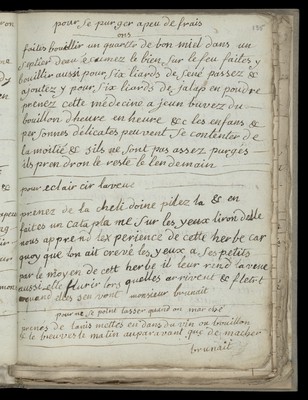 pour se purger a peu de frais
ons
faites bouillir un quarte de bon miel dans un
septier deau ecumez le bien, sur le feu faites y
bouillir aussi pour six liards de sené passez &c
ajoutez y pour six liards de jalap en poudre
prenez cette medecine a jeun buvez du
bouillon dheure en heure &c les enfans &
personnes delicates peuvent se contenter de
la moitié &c sils ne sont pas assez purgés
ils prendron le reste le lendemain
pour eclaircir la veue
prenez de la chelidoine pilez la & en
faites un cataplame sur les yeux lirondelle
nous apprend lexperience de cette herbe car
quoy que lon ait crevé les yeux a ses petits
par le moyen de cett herbe il leur rend la veue
aussi elle flurir lors quelles arrivent & fletrit
quand elles sen vont monsieur brunait
pour ne se point lasser quand on marche
prenes de lanis mettes en dans du vin ou bouillon
& le beuvez le matin auparavant que de marcher
brunait